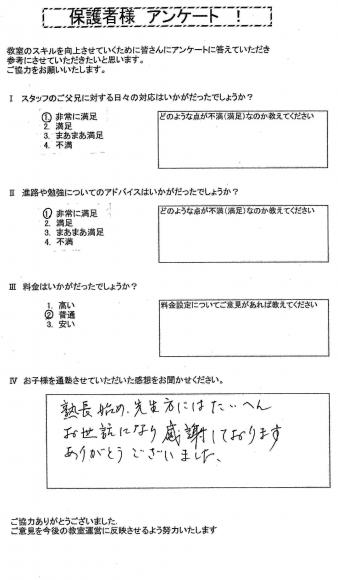 保護者様 アンケート ！
教室のスキルを向上させていくために皆さんにアンケートに答えていただき
参考にさせていただきたいと思います。
ご協力をお願いいたします。
Ⅰ スタッフのご父兄に対する日々の対応はいかがだったでしょうか？
1. 非常に満足
2. 満足
3. まあまあ満足
4. 不満
どのような点が不満(満足)なのか教えてください
Ⅱ 進路や勉強についてのアドバイスはいかがだったでしょうか？
1. 非常に満足
2. 満足
3. まあまあ満足
4. 不満
どのような点が不満(満足)なのか教えてください
Ⅲ 料金はいかがだったでしょうか？
1. 高い
2. 普通
3. 安い
料金設定についてご意見があれば教えてください
Ⅳ お子様を通塾させていただいた感想をお聞かせください。
塾長始め、先生方にはたいへん
お世話になり感謝しております
ありがとうございました。
ご協力ありがとうございました。
ご意見を今後の教室運営に反映させるよう努力いたします